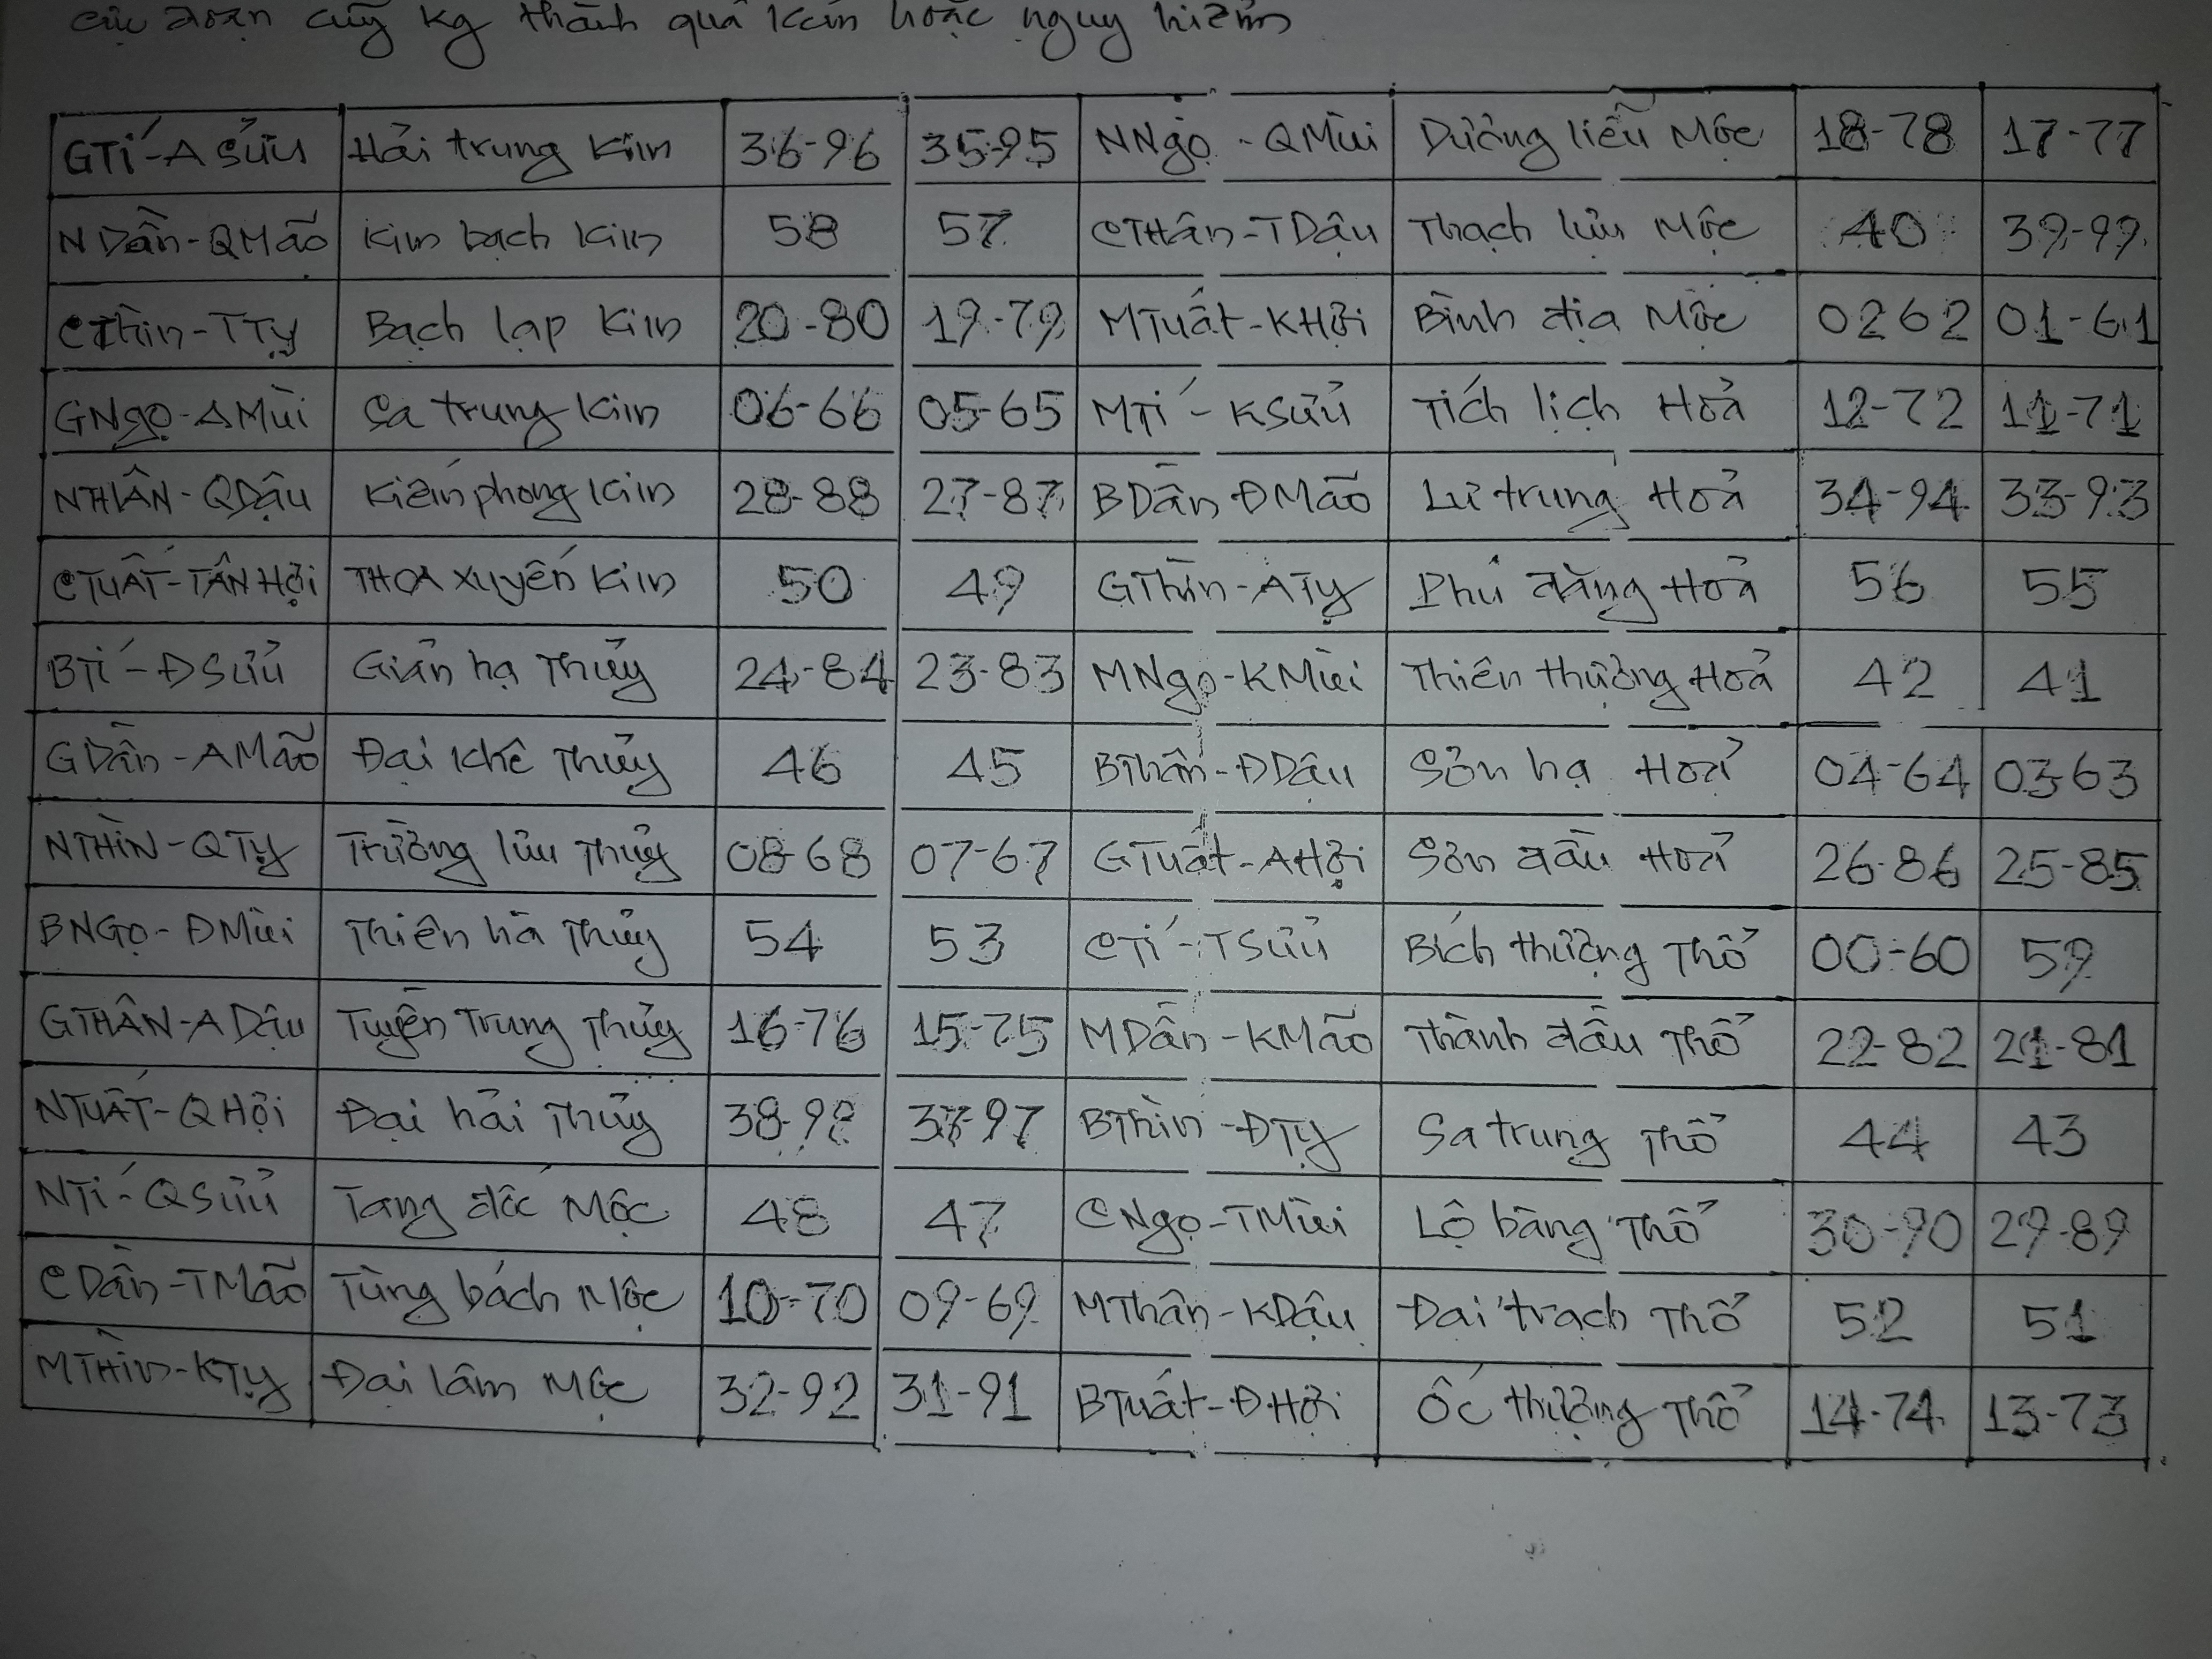 cực đoan cũng kg thành quả kém hoặc nguy hiểm
GTí-A Sửu Hải trung Kim 36-96 35-95 NNgọ-QMùi Dương liễu Mộc 18-78 17-77
N Dần-QMão Kim bạch Kim 58 57 CTHân-TDậu Thạch lựu Mộc 40 39-99
CThìn-TTỵ Bạch lạp Kim 20-80 19-79 MTuất-KHợi Bình địa Mộc 0262 01-61
GNgọ-AMùi Sa trung Kim 06-66 05-65 MTí-KSửu Tích lịch Hoả 12-72 11-71
NTHÂN-QDậu Kiếm phong Kim 28-88 27-87 BDần ĐMão Lư trung Hoả 34-94 33-93
CTUẤT-TÂN Hợi THOA XUYẾN Kim 50 49 GThìn-ATỵ Phú đăng Hoả 56 55
BTí-ĐSửu Giản hạ Thủy 24-84 23-83 MNgọ-KMùi Thiên thượng Hoả 42 41
GDần-AMão Đại khê Thủy 46 45 BThân-ĐDậu Sơn hạ Hoả 04-64 0363
NTHÌN-QTỵ Trường lưu Thủy 08-68 07-67 GTuất-AHợi Sơn đầu Hoả 26-86 25-85
BNGọ-ĐMùi Thiên hà Thủy 54 53 CTí-TSửu Bích thượng Thổ 00-60 59
GTHÂN-A Dậu Tuyền Trung Thủy 16-76 15-75 MDần-KMão Thành đầu Thổ 22-82 21-81
NTUẤT-QHợi Đại hải Thủy 38-98 37-97 BThìn-ĐTỵ Sa trung Thổ 44 43
NTí-QSửu Tang đốc Mộc 48 47 CNgọ-TMùi Lộ bàng Thổ 30-90 29-89
CDần-TMão Tùng bách Mộc 10-70 09-69 MThân-KDậu Đại trạch Thổ 52 51
MTHìn-KTỵ Đại lâm Mộc 32-92 31-91 BTuất-ĐHợi Ốc thượng Thổ 14-74 13-73